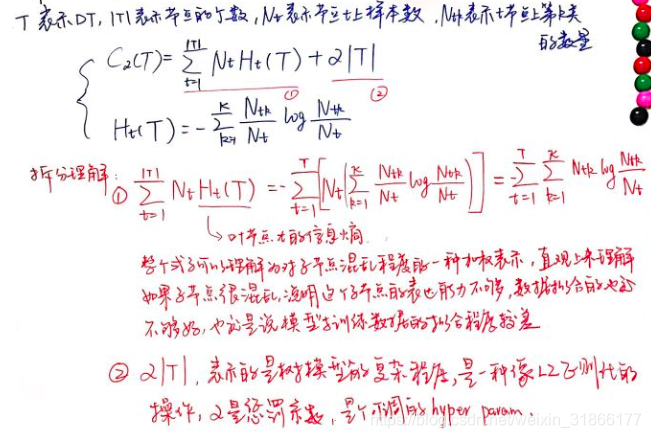 T 表示DT, |T|表示节点的个数, Nt 表示节点t上样本数, Ntk表示t节点上第k类
的数量
Cα(T)= Σ_{t=1}^{|T|} Nt Ht(T) + α|T|
① ②
Ht(T) = -Σ_{k=1}^{K} Ntk/Nt log Ntk/Nt
拆分理解:
① Σ_{t=1}^{|T|} Nt Ht(T) = -Σ_{t=1}^{T} [Nt(Σ_{k=1}^{K} Ntk/Nt log Ntk/Nt)] = -Σ_{t=1}^{T} Σ_{k=1}^{K} Ntk log Ntk/Nt
↳ 叶节点t的信息熵.
整个式子可以理解为对子节点混乱程度的一种加权表示, 直观上来理解
如果子节点很混乱, 说明这个子节点的表达能力不够, 数据拟合的也
不够好, 也就是说模型对训练数据的拟合程度较差
② α|T|, 表示的是树模型的复杂程度, 是一种像L2正则化的
操作, α是惩罚系数, 是个可调的hyper param.
https://blog.csdn.net/weixin_31866177